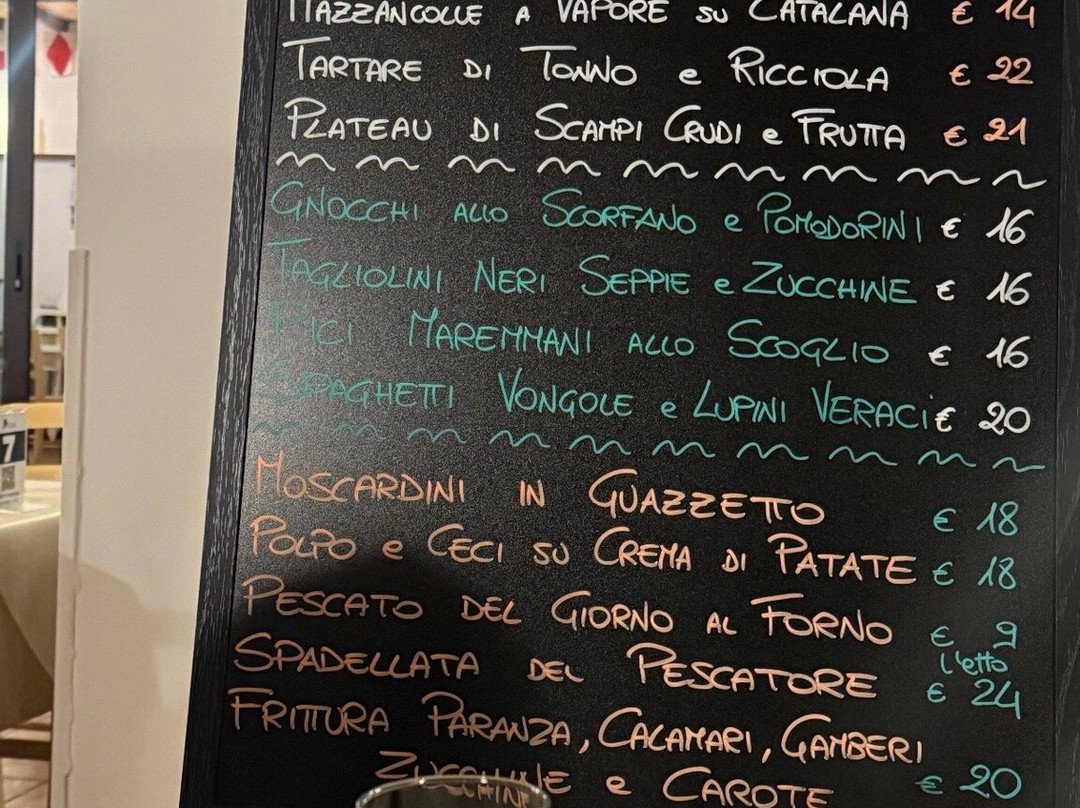 MAZZANCOLLE A VAPORE SU CATALANA € 14
TARTARE DI TONNO e RICCIOLA € 22
PLATEAU DI SCAMPI CRUDI e FRUTTA € 21
GNOCCHI ALLO SCORFANO e POMODORINI € 16
TAGLIOLINI NERI SEPPIE e ZUCCHINE € 16
PICI MAREMMANI ALLO SCOGLIO € 16
SPAGHETTI VONGOLE e LUPINI VERACI € 20
MOSCARDINI IN GUAZZETTO € 18
POLPO e CECI SU CREMA DI PATATE € 18
PESCATO DEL GIORNO AL FORNO € 9
l'etto
SPADELLATA DEL PESCATORE € 24
FRITTURA PARANZA, CALAMARI, GAMBERI
ZUCCHINE e CAROTE € 20
7